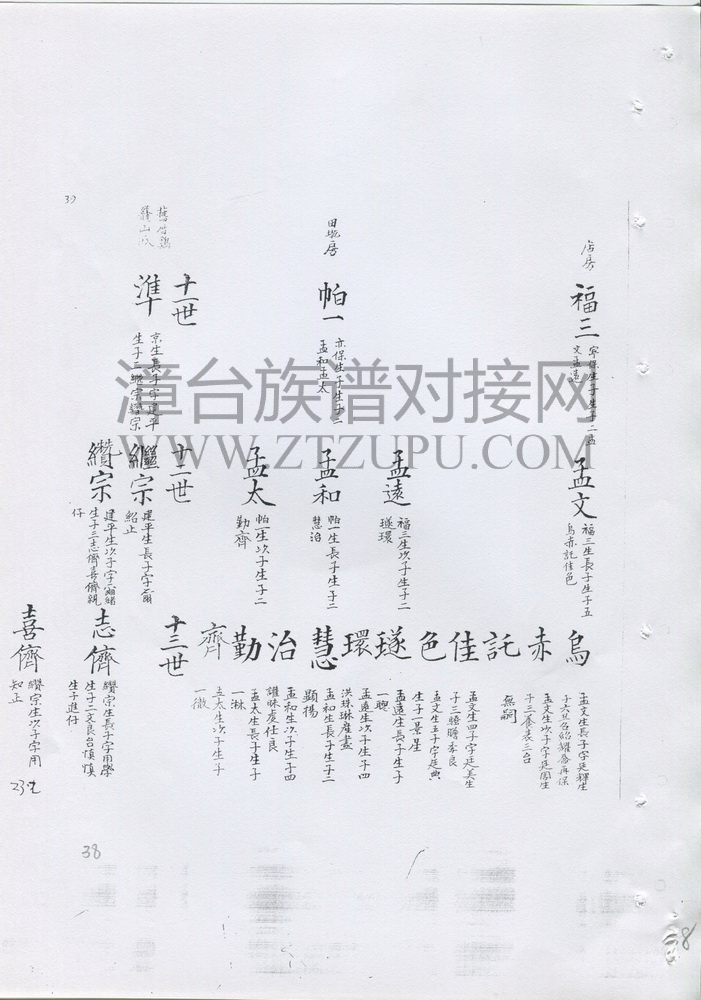 店房
福三
寧保生子生子二孟
文孟遠
田墘房
帕一
亦保生子生子二
孟和孟太
十一世
準
京生長子字建平
生子二繼宗纘宗
孟文
福三生長子生子五
烏赤託佳色
孟遠
福三生次子生子二
璲環
孟和
帕一生長子生子二
慧治
孟太
帕一生次子生子二
勤齊
十二世
繼宗
建平生長子字
紹正
纘宗
建平生次子字緒
生子三志儕喜儕
仔
烏
孟文生長子字廷輝生
赤
孟文生次子字廷鳳生
子三養表三台
託
無嗣
佳
孟文生四子字廷美生
色
孟文生五子字廷典
生子一景星
璲
孟遠生長子生子
一聰
環
孟遠生次子生子四
洪珠琳
慧
孟和生長子生子二
顯揚
治
孟和生次子生子四
勤
孟太生長子生子
一淋
齊
孟太生次子生子
一微
十三世
志儕
纘宗生長子字用學
生子二文良台慎慎
生子進仔
喜儕
纘宗生次子字用
知正
39
38
8
漳台族谱对接网
WWW.ZTZUPU.COM